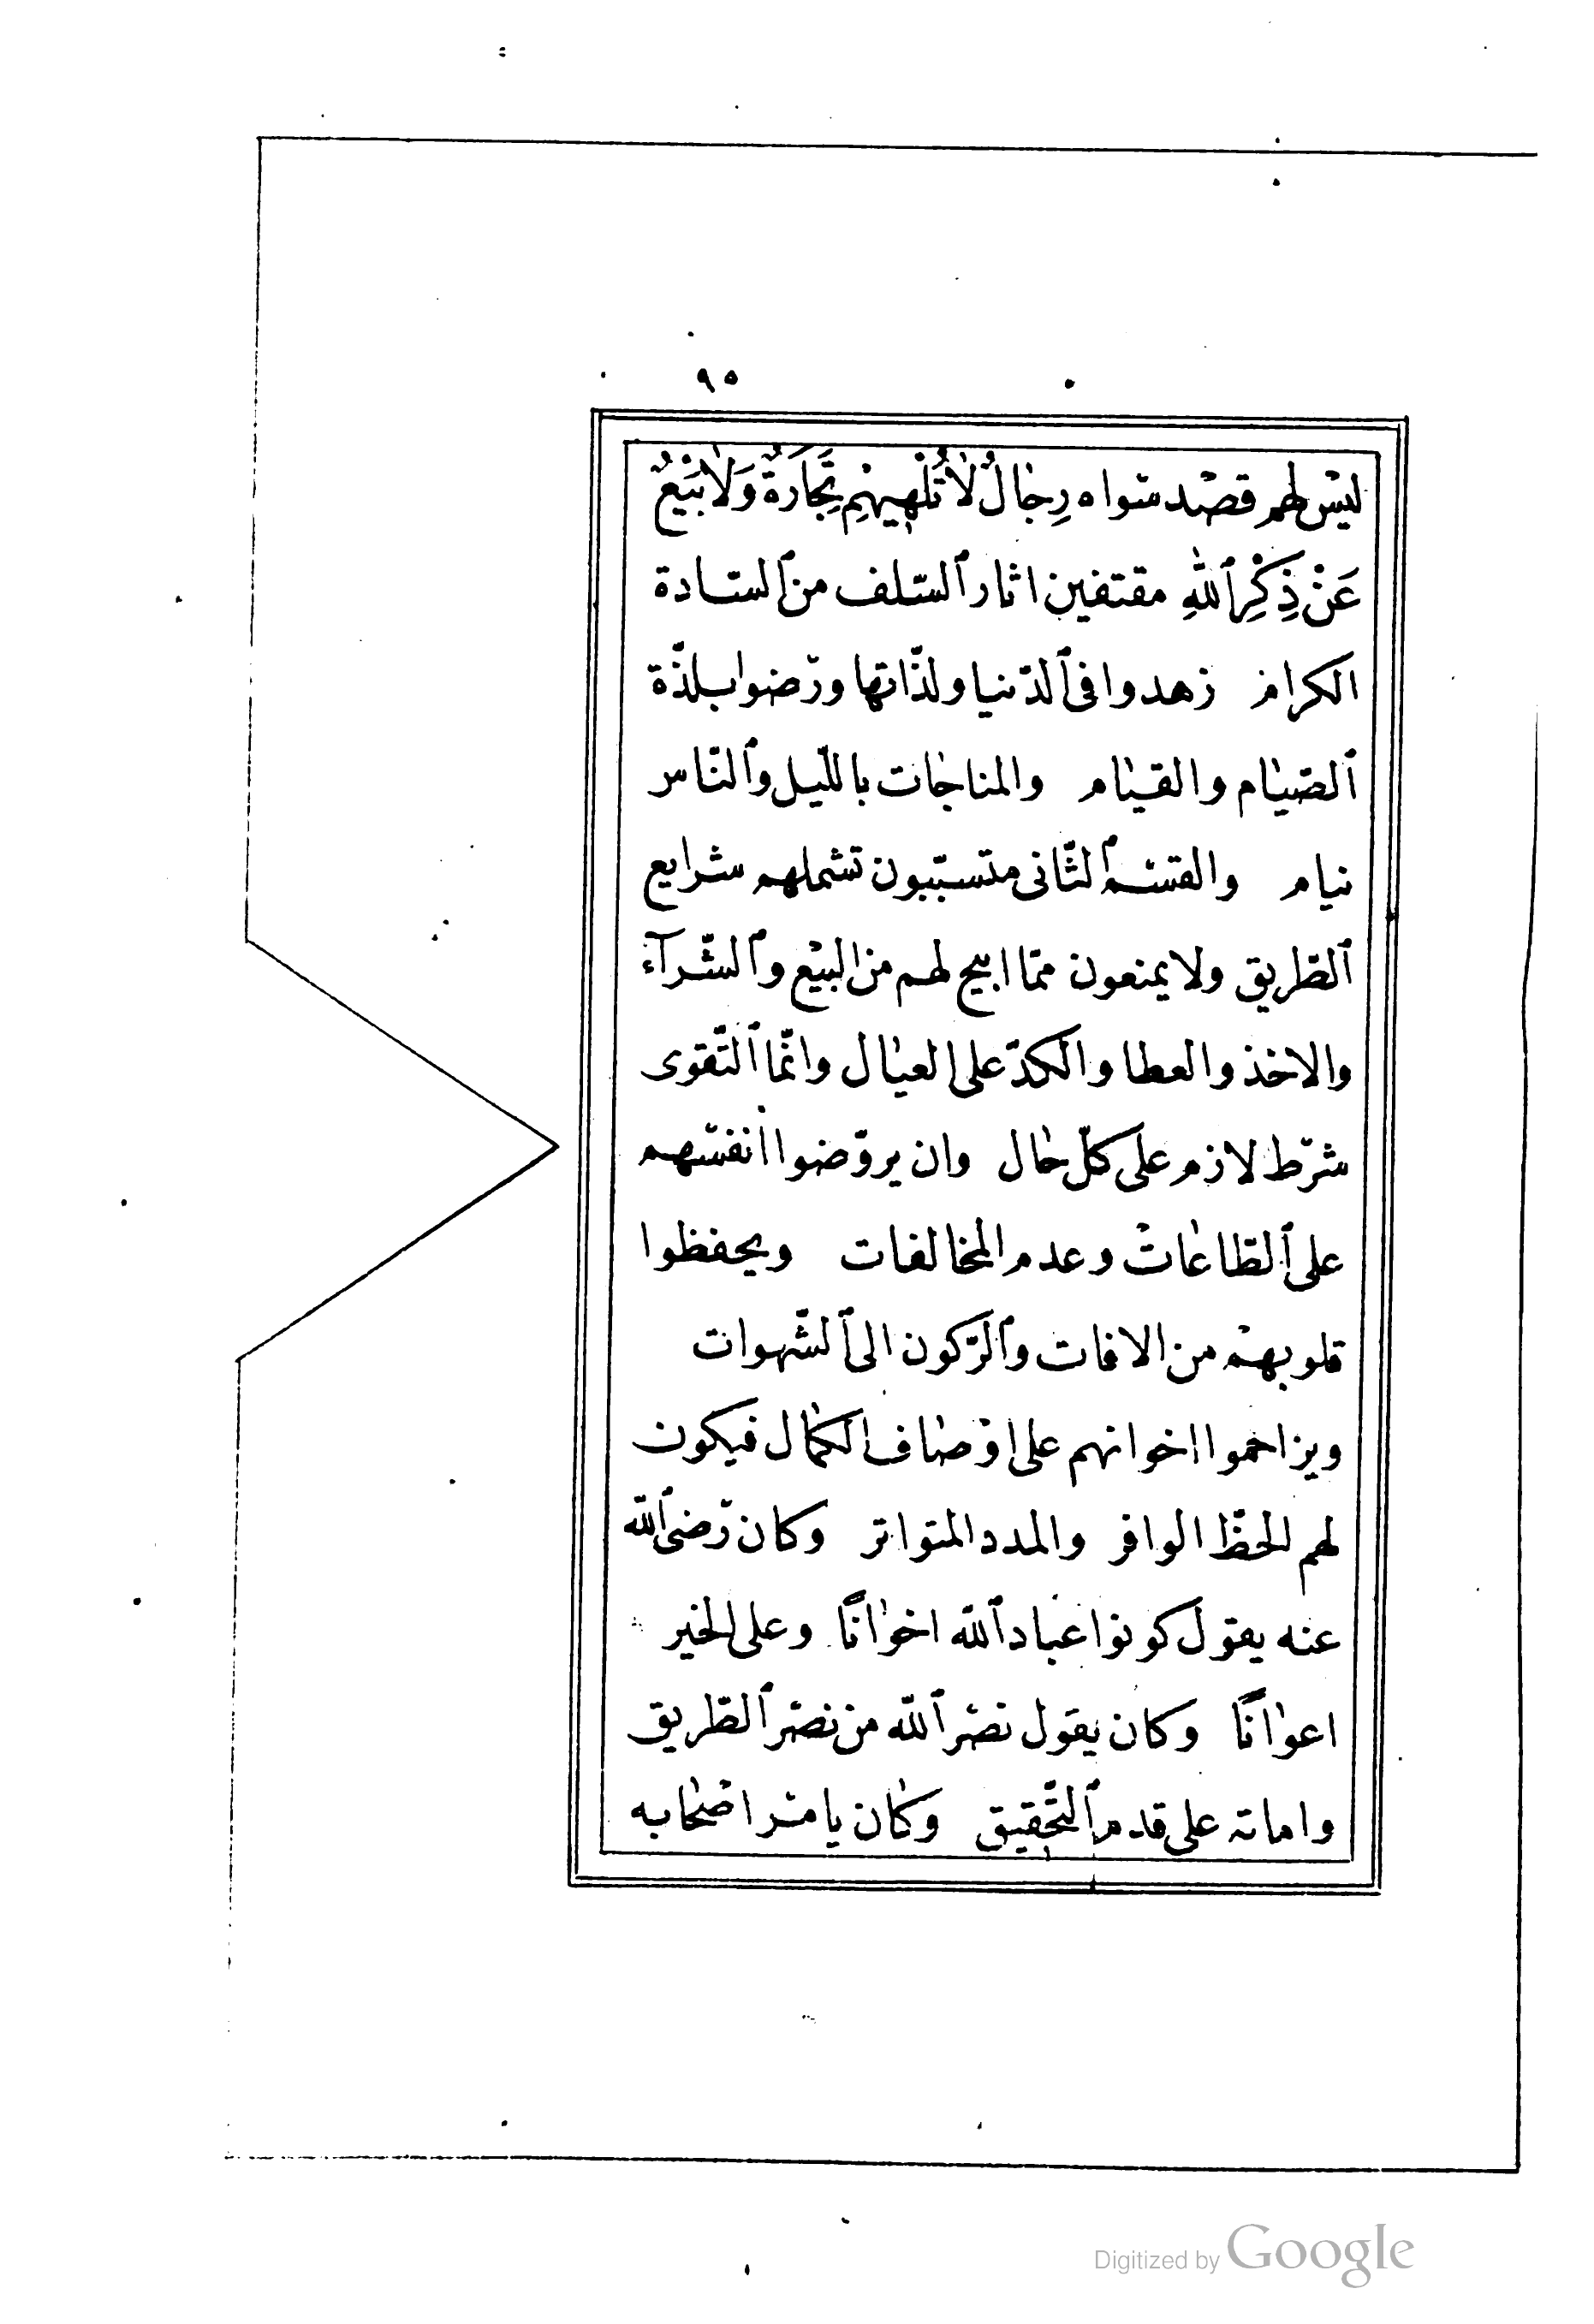 ٩٥
ليس لهم قصد سواه رِجَالٌ لَا تُلْهِيهِمْ تِجَارَةٌ وَلَا بَيْعٌ
عَنْ ذِكْرِ ٱللهِ مقتفين اثار ٱلسّلف من ٱلسّادة
الكرام زهدوا فى ٱلدّنيا ولذّاتها ورضوا بلذّة
ٱلصّيام والقيام والمناجات بالليل وٱلنّاس
نيام والقسم ٱلثّانى متسبّبون تشملهم شرايع
ٱلطّريق ولا يمنعون ممّا ابيح لهم من البيع وٱلشّرآء
والاخذ والعطا والكدّ على العيال وانّما ٱلتّقوى
شرط لازم على كلّ حال وان يروّضوا أنفسهم
على ٱلطّاعات وعدم المخالفات ويحفظوا
قلوبهم من الافات وٱلرّكون الى ٱلشّهوات
ويزاحموا اخوانهم على اوصاف الكمال فيكون
لهم الحظّ الوافر والمدد المتواتر وكان رضى ٱللّه
عنه يقول كونوا عباد ٱللّه اخوانًا وعلى الخير
اعوانًا وكان يقول نصر ٱللّه من نصر ٱلطّريق
واماته على قدم ٱلتّحقيق وكان يامر اصحابه
Digitized by Google